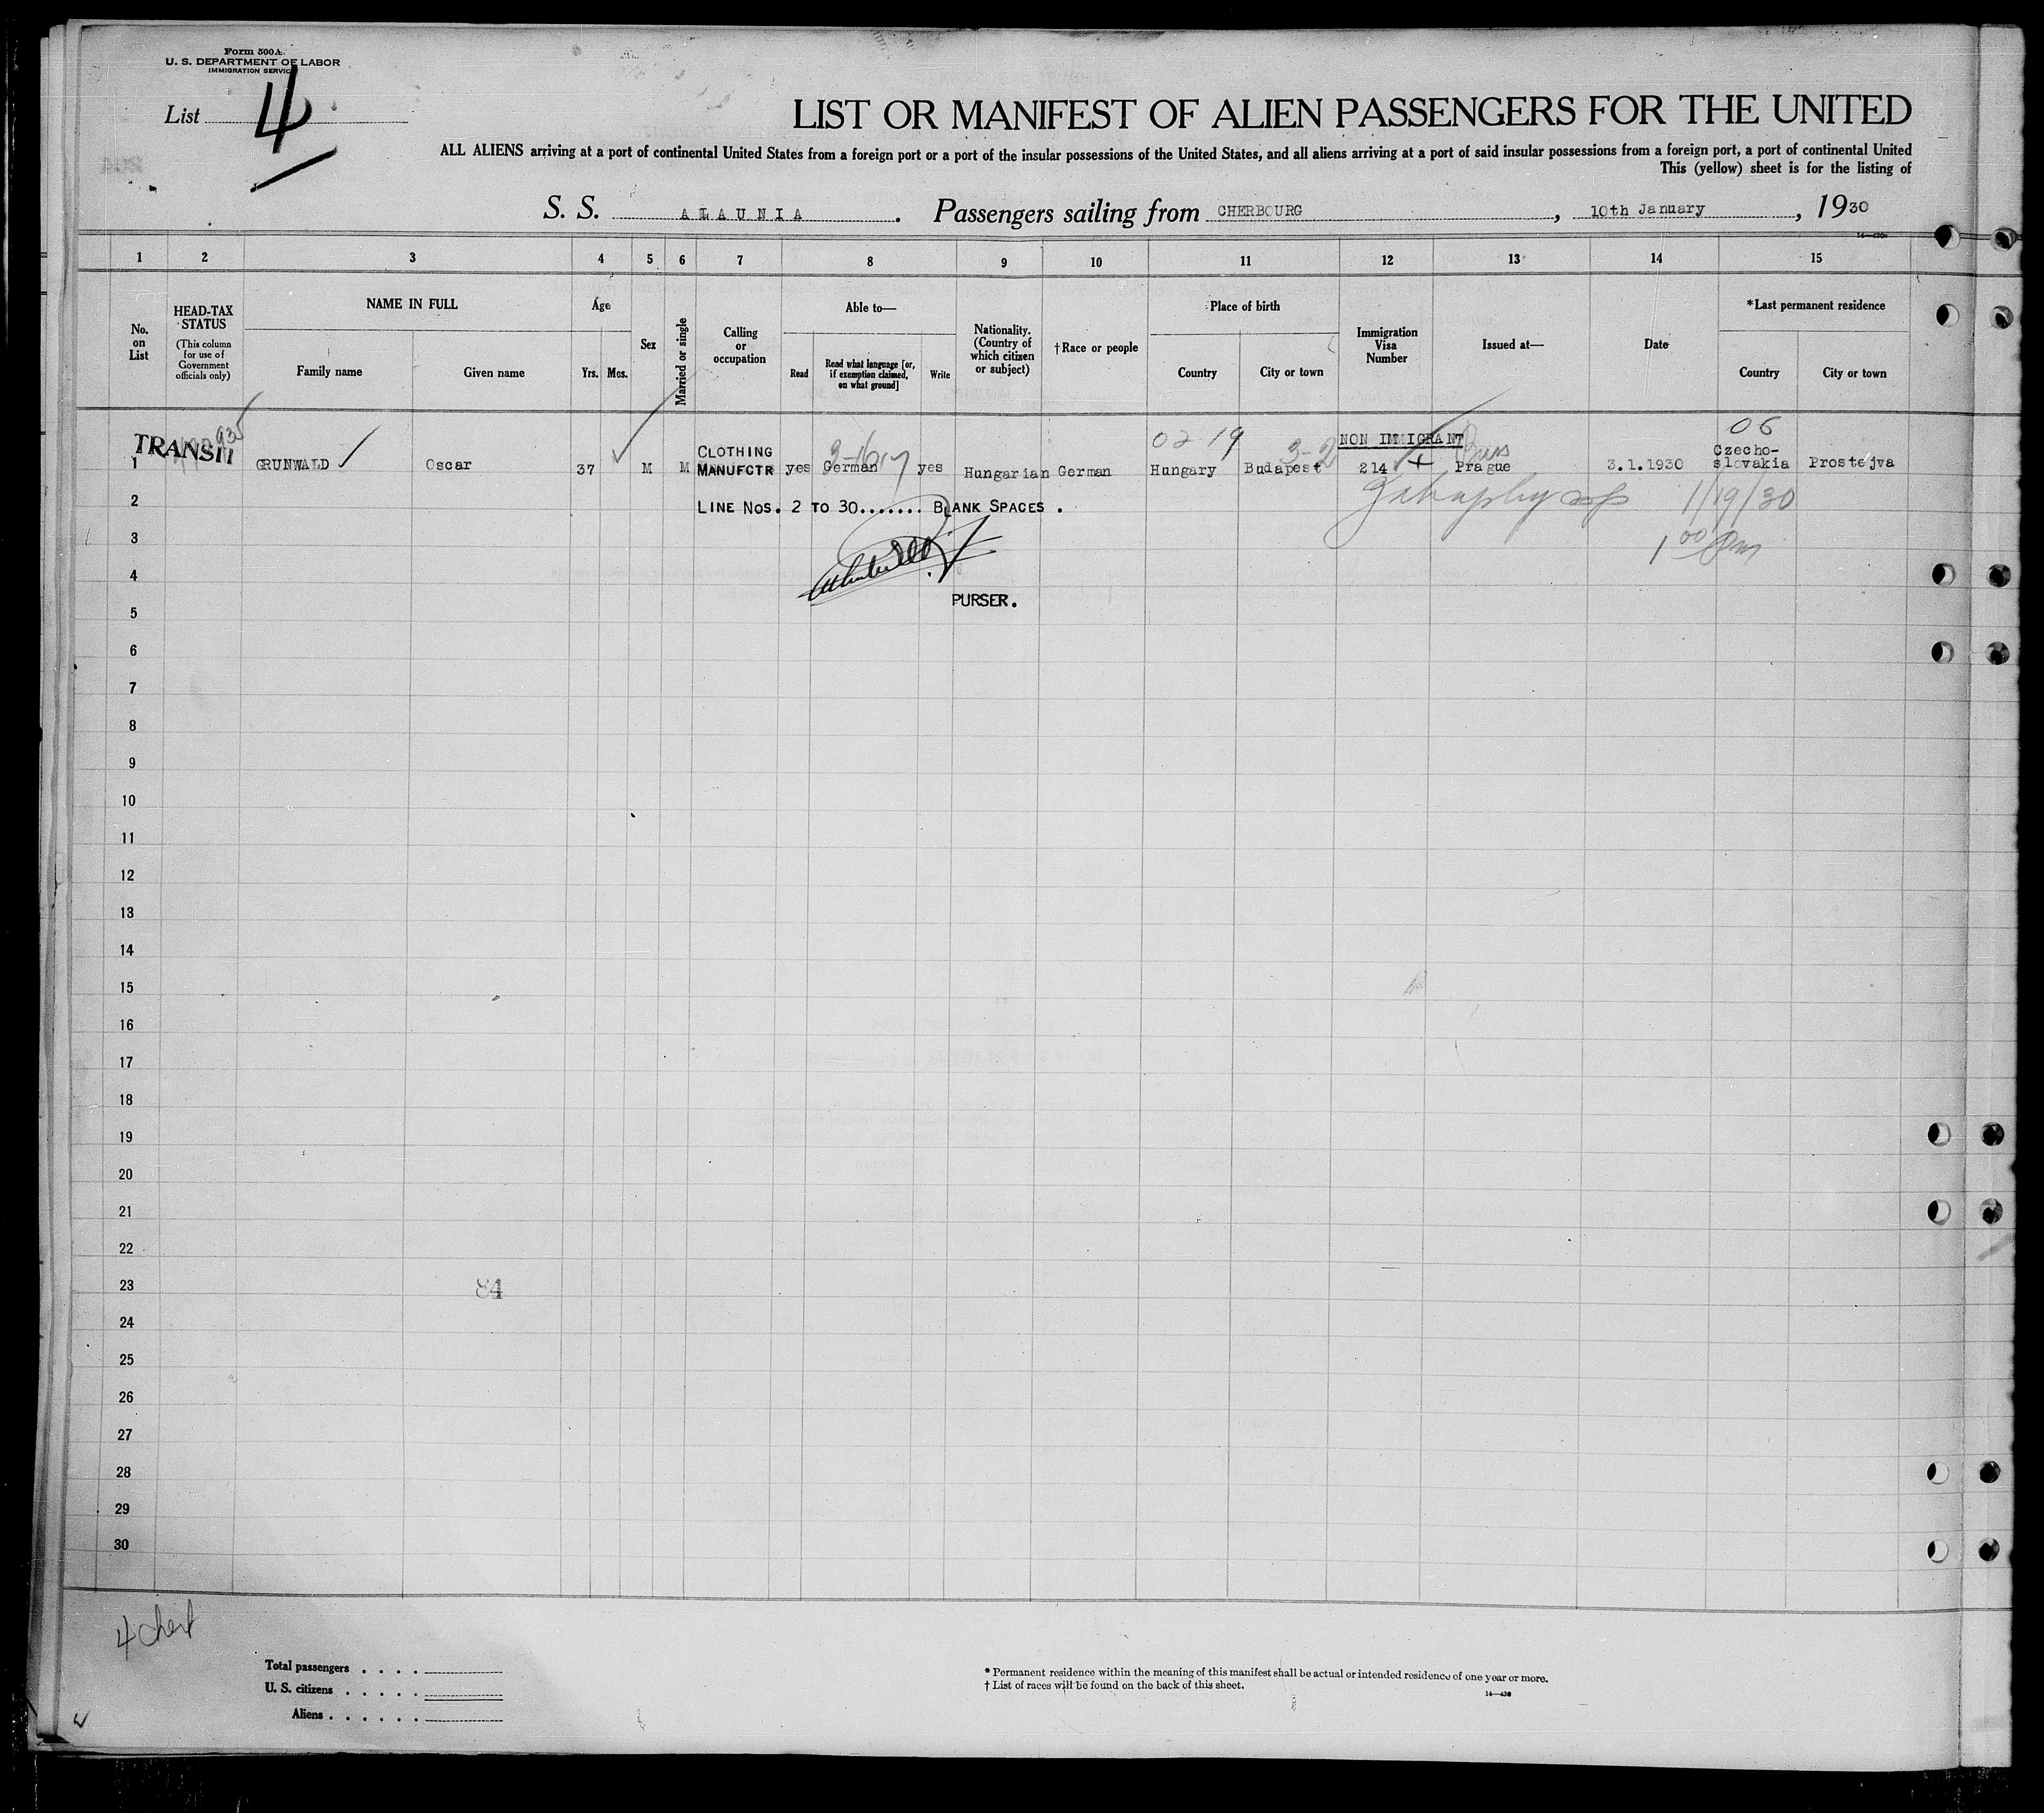 Form 500A
U. S. DEPARTMENT OF LABOR
IMMIGRATION SERVICE
List 4
LIST OR MANIFEST OF ALIEN PASSENGERS FOR THE UNITED
ALL ALIENS arriving at a port of continental United States from a foreign port or a port of the insular possessions of the United States, and all aliens arriving at a port of said insular possessions from a foreign port, a port of continental United
This (yellow) sheet is for the listing of
S. S. ALAUNIA. Passengers sailing from CHERBOURG, 10th January, 1930
1 2 3 4 5 6 7 8 9 10 11 12 13 14 15
No. on List
HEAD-TAX STATUS
(This column for use of Government officials only)
NAME IN FULL
Family name Given name
Age
Yrs. Mos.
Sex
Married or single
Calling or occupation
Able to—
Read
Read what language [or, if exemption claimed, on what ground]
Write
Nationality. (Country of which citizen or subject)
†Race or people
Place of birth
Country City or town
Immigration Visa Number
Issued at—
Date
*Last permanent residence
Country City or town
935
02-19 NON IMMIGRANT 06
TRANSIT
1 GRUNWALD Oscar 37 M M CLOTHING MANUFCTR yes German yes Hungarian German Hungary Budapest 214 Prague 3.1.1930 Czecho-slovakia Prostejva
3-2
2 LINE NOS. 2 TO 30....... BLANK SPACES. 1/19/30
3 1 00 Pm
4
PURSER.
5
6
7
8
9
10
11
12
13
14
15
16
17
18
19
20
21
22
23 84
24
25
26
27
28
29
30
4 cherb
Total passengers . . . .
U. S. citizens . . . . .
Aliens . . . . . .
* Permanent residence within the meaning of this manifest shall be actual or intended residence of one year or more.
† List of races will be found on the back of this sheet.
14—430